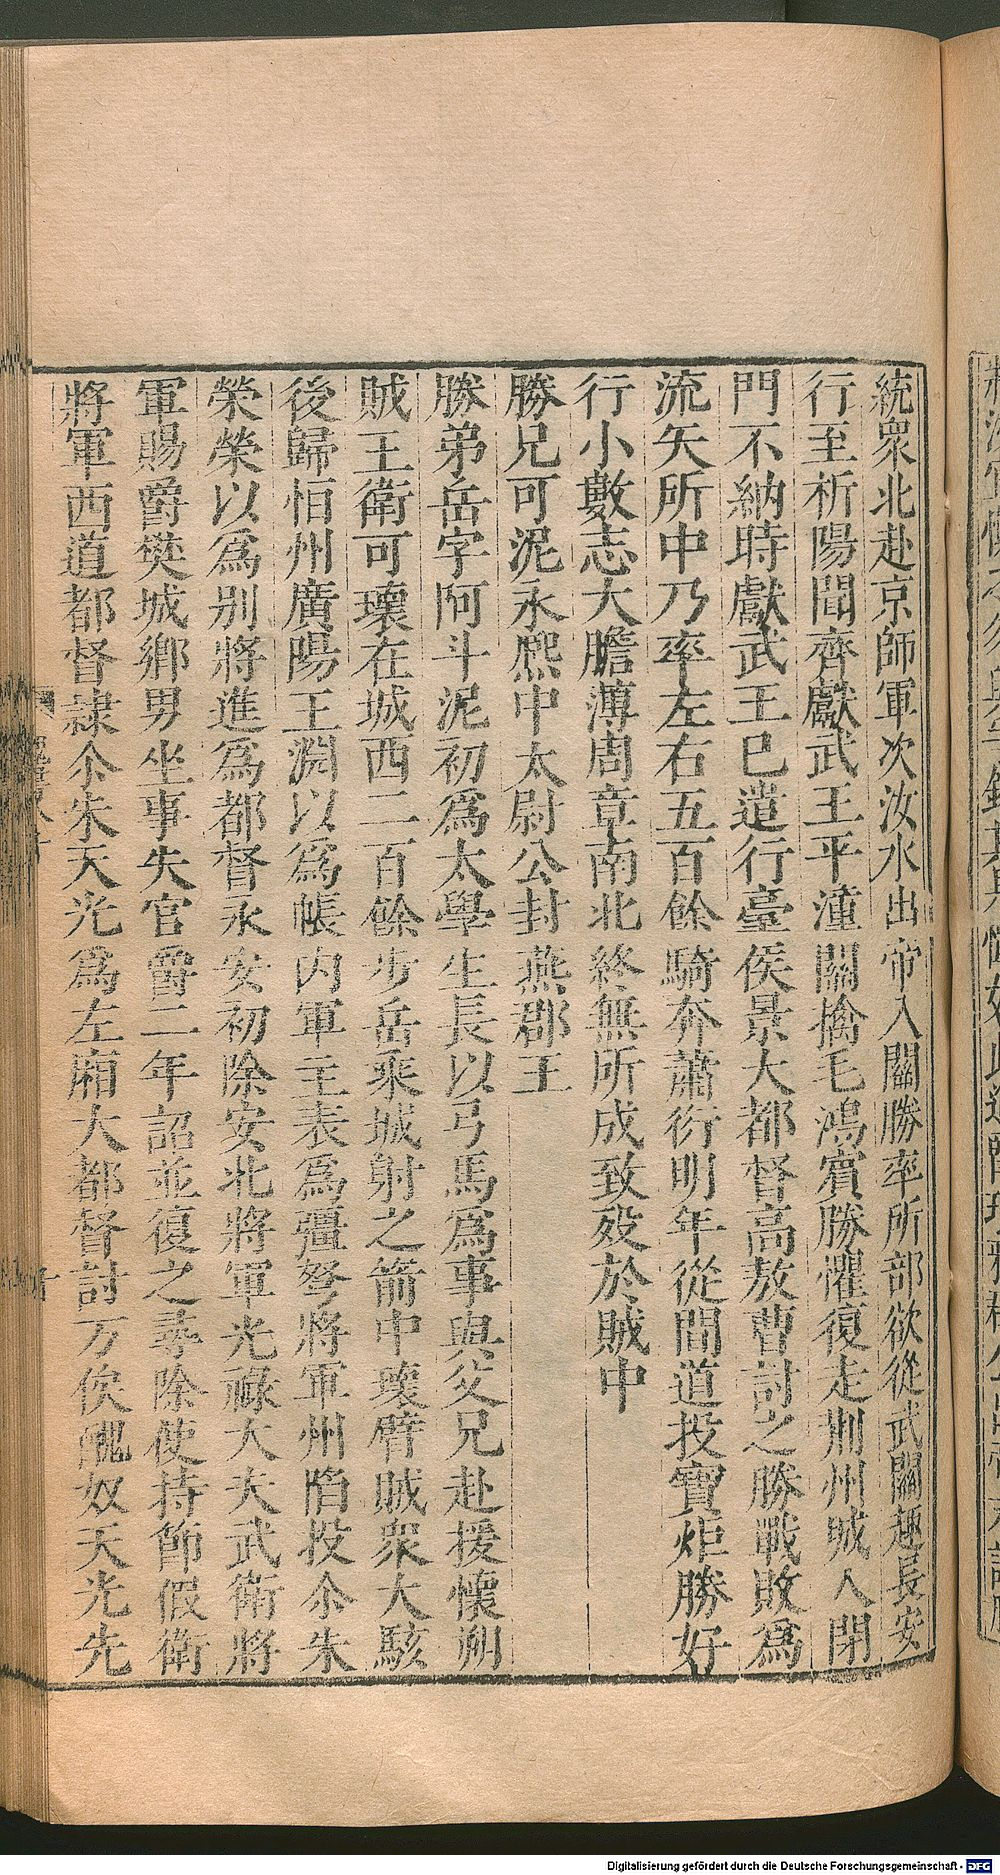 統衆北赴京師軍次汝水出帝入關勝率所部欲從武關趣長安
行至析陽聞齊獻武王平潼關擒毛鴻賓勝懼復走荆州城人閉
門不納時獻武王已遣行臺侯景大都督高敖曹討之勝戰敗爲
流矢所中乃率左右五百餘騎奔蕭衍明年從間道投寶炬勝好
行小數志大膽薄周章南北終無所成致殁於賊中
勝兄可泥永熙中太尉公封燕郡王
勝弟岳字阿斗泥初爲太學生長以弓馬爲事與父兄赴援懷朔
賊王衛可瓌在城西二百餘步岳乘城射之箭中瓌臂賊衆大駭
後歸恒州廣陽王淵以爲帳内軍主表爲彊弩將軍州陷投尒朱
榮榮以爲别將進爲都督永安初除安北將軍光祿大夫武衛將
軍賜爵樊城鄉男坐事失官爵二年詔並復之尋除使持節假衛
將軍西道都督隷尒朱天光爲左廂大都督討万俟醜奴天光先
Digitalisierung gefördert durch die Deutsche Forschungsgemeinschaft - DFG